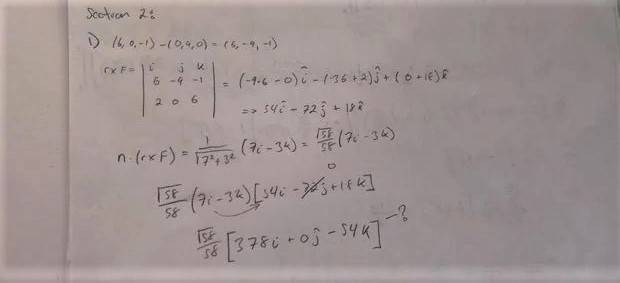 Section 2:
1) (6, 0, -1) - (0, 9, 0) = (6, -9, -1)
r x F = | i j k
6 -9 -1
2 0 6 | = (-9·6 - 0) î - (36 + 2) ĵ + (0 + 18) k̂
=> 54î - 72ĵ + 18k̂
n · (r x F) = 1/√(7²+3²) (7i - 3k) = √58/58 (7i - 3k)
0
√58/58 (7i - 3k) [54i - 72j + 18k]
√58/58 [378i + 0ĵ - 54k] - ?